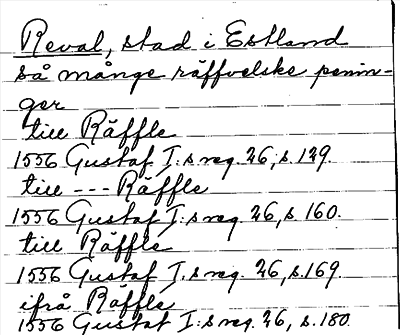 Reval, stad i Estland
så månge räffvelske penin-
ger
till Räffle
1556 Gustaf I:s reg. 26, s. 129.
till --- Räffle
1556 Gustaf I:s reg. 26, s. 160.
till Räffle
1556 Gustaf I:s reg. 26, s. 169.
ifrå Räffle
1556 Gustaf I:s reg. 26, s. 180.